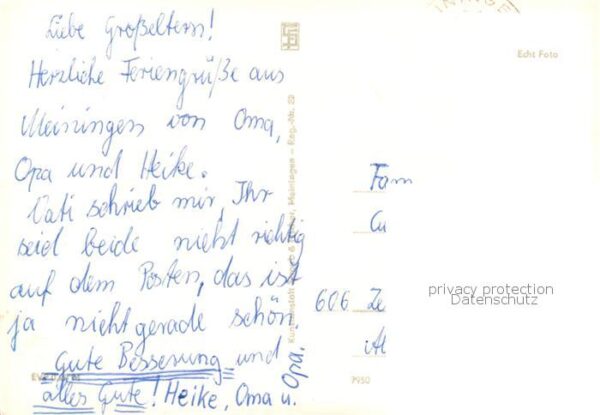 Liebe Großeltern!
Herzliche Feriengrüße aus
Meiningen von Oma,
Opa und Heike.
Vati schrieb mir, Ihr
seid beide nicht richtig
auf dem Posten, das ist
ja nicht gerade schön.
Gute Besserung und
alles Gute! Heike, Oma u.
Opa.
Echt Foto
Meiningen – Reg.-Nr.
Fam
606 Ze
privacy protection
Datenschutz